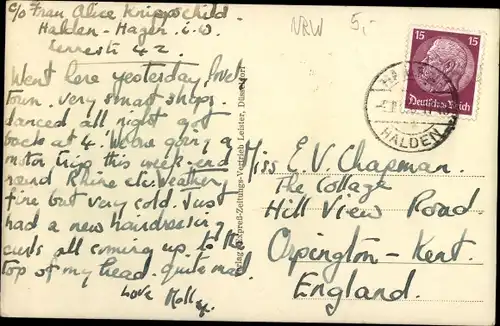 c/o Frau Alice Knippschild.
Halden-Hagen i.W.
42
Went here yesterday, lovely
town. very smart shops.
danced all night got
back at 4. We are going a
motor trip this week-end
round Rhine etc. Weather
fine but very cold. Just
had a new hairdressing
curls all coming up to the
top of my head. quite mad.
Love Molly.
Verlag Expreß-Zeitungs-Vertrieb Leister, Düsseldorf
NRW 5,-
15 15
Deutsches Reich
HALDEN
Miss E V. Chapman.
The Cottage
Hill View Road
Orpington - Kent.
England.